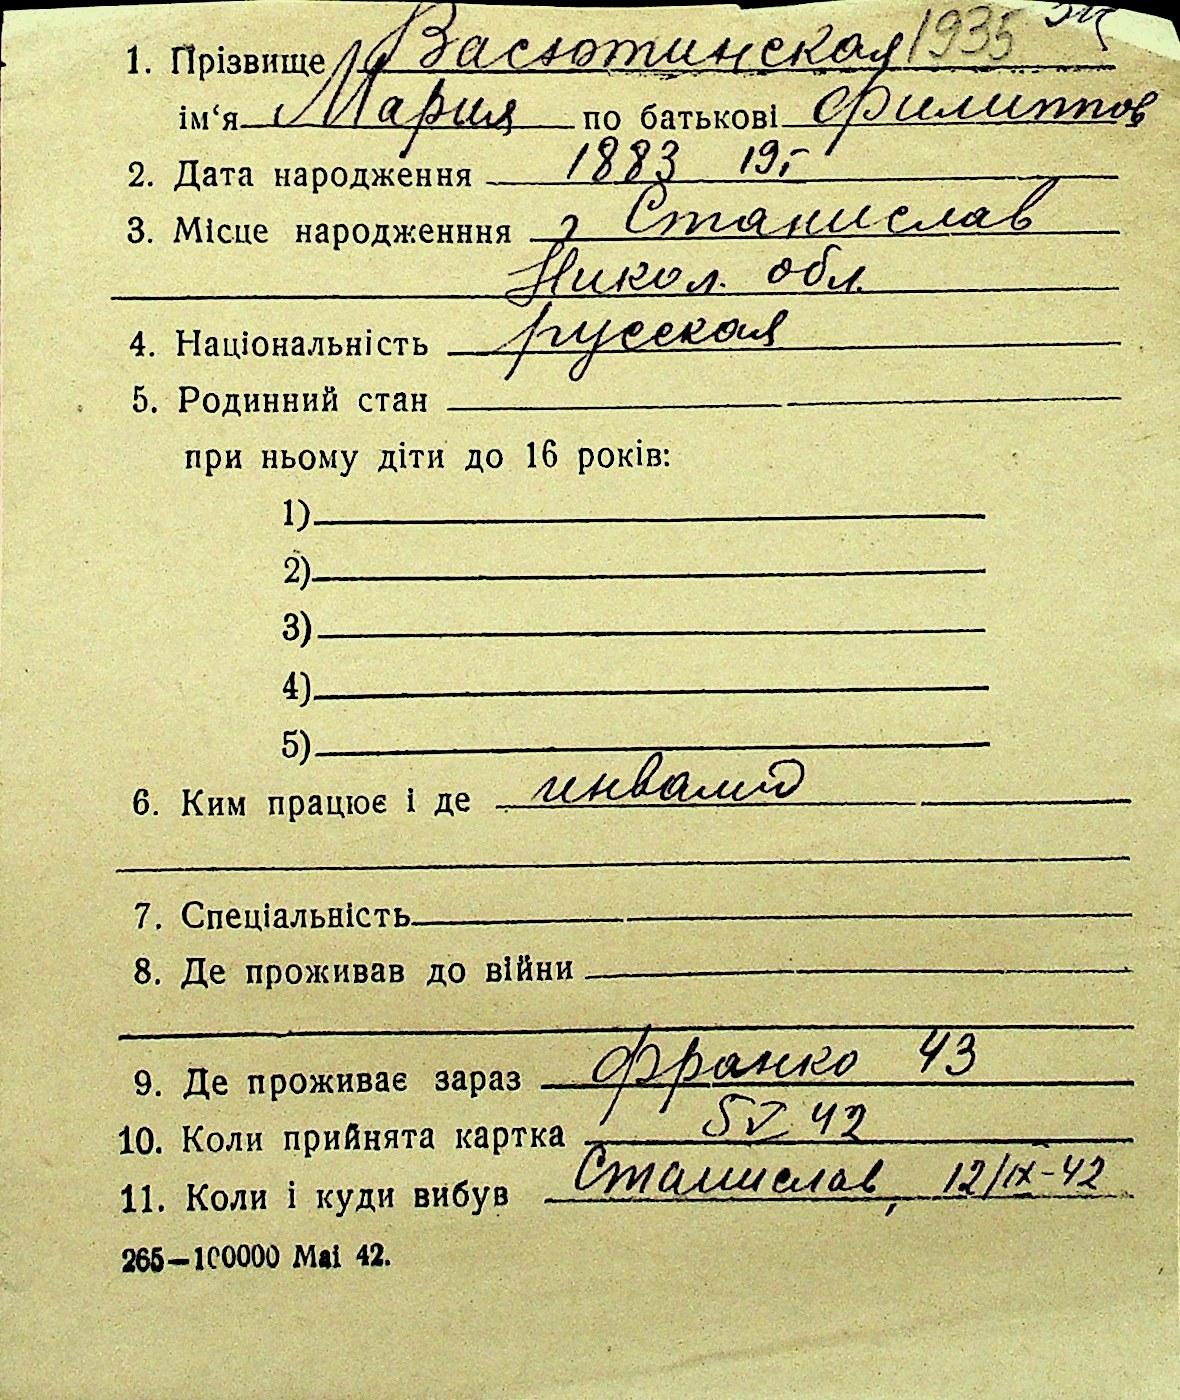 1. Прізвище Васютинская 1935
ім‘я Мария по батькові Филиппов
2. Дата народження 1883 19г
3. Місце народженння г Станислав
Никол. обл.
4. Національність русская
5. Родинний стан
при ньому діти до 16 років:
1)
2)
3)
4)
5)
6. Ким працює і де инвалид
7. Спеціальність
8. Де проживав до війни
9. Де проживає зараз Франко 43
10. Коли прийнята картка 5 V 42
11. Коли і куди вибув Станислав, 12/IX-42
265—100000 Маі 42.